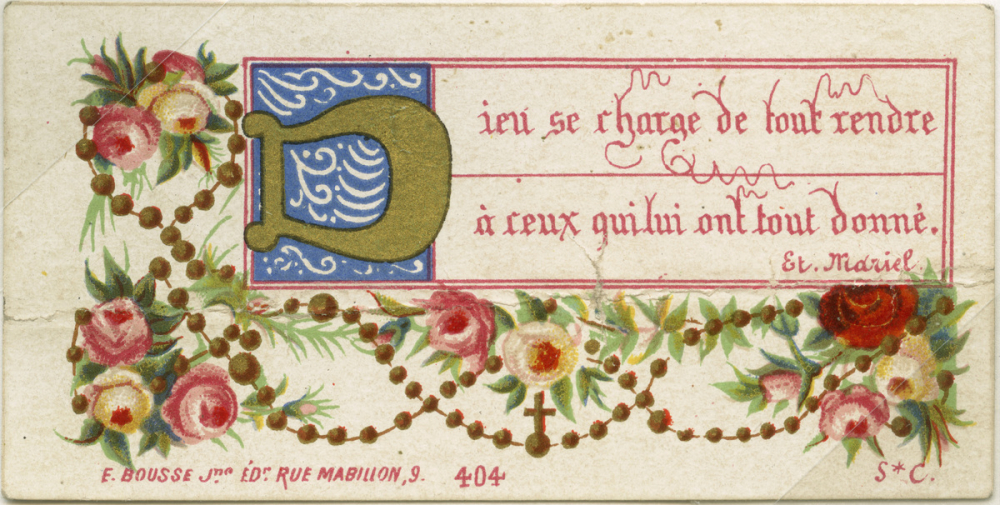 Dieu se charge de tout rendre
à ceux qui lui ont tout donné.
Et. Mariel
E. BOUSSE Jne ÉDr RUE MABILLON, 9. 404 S*C.